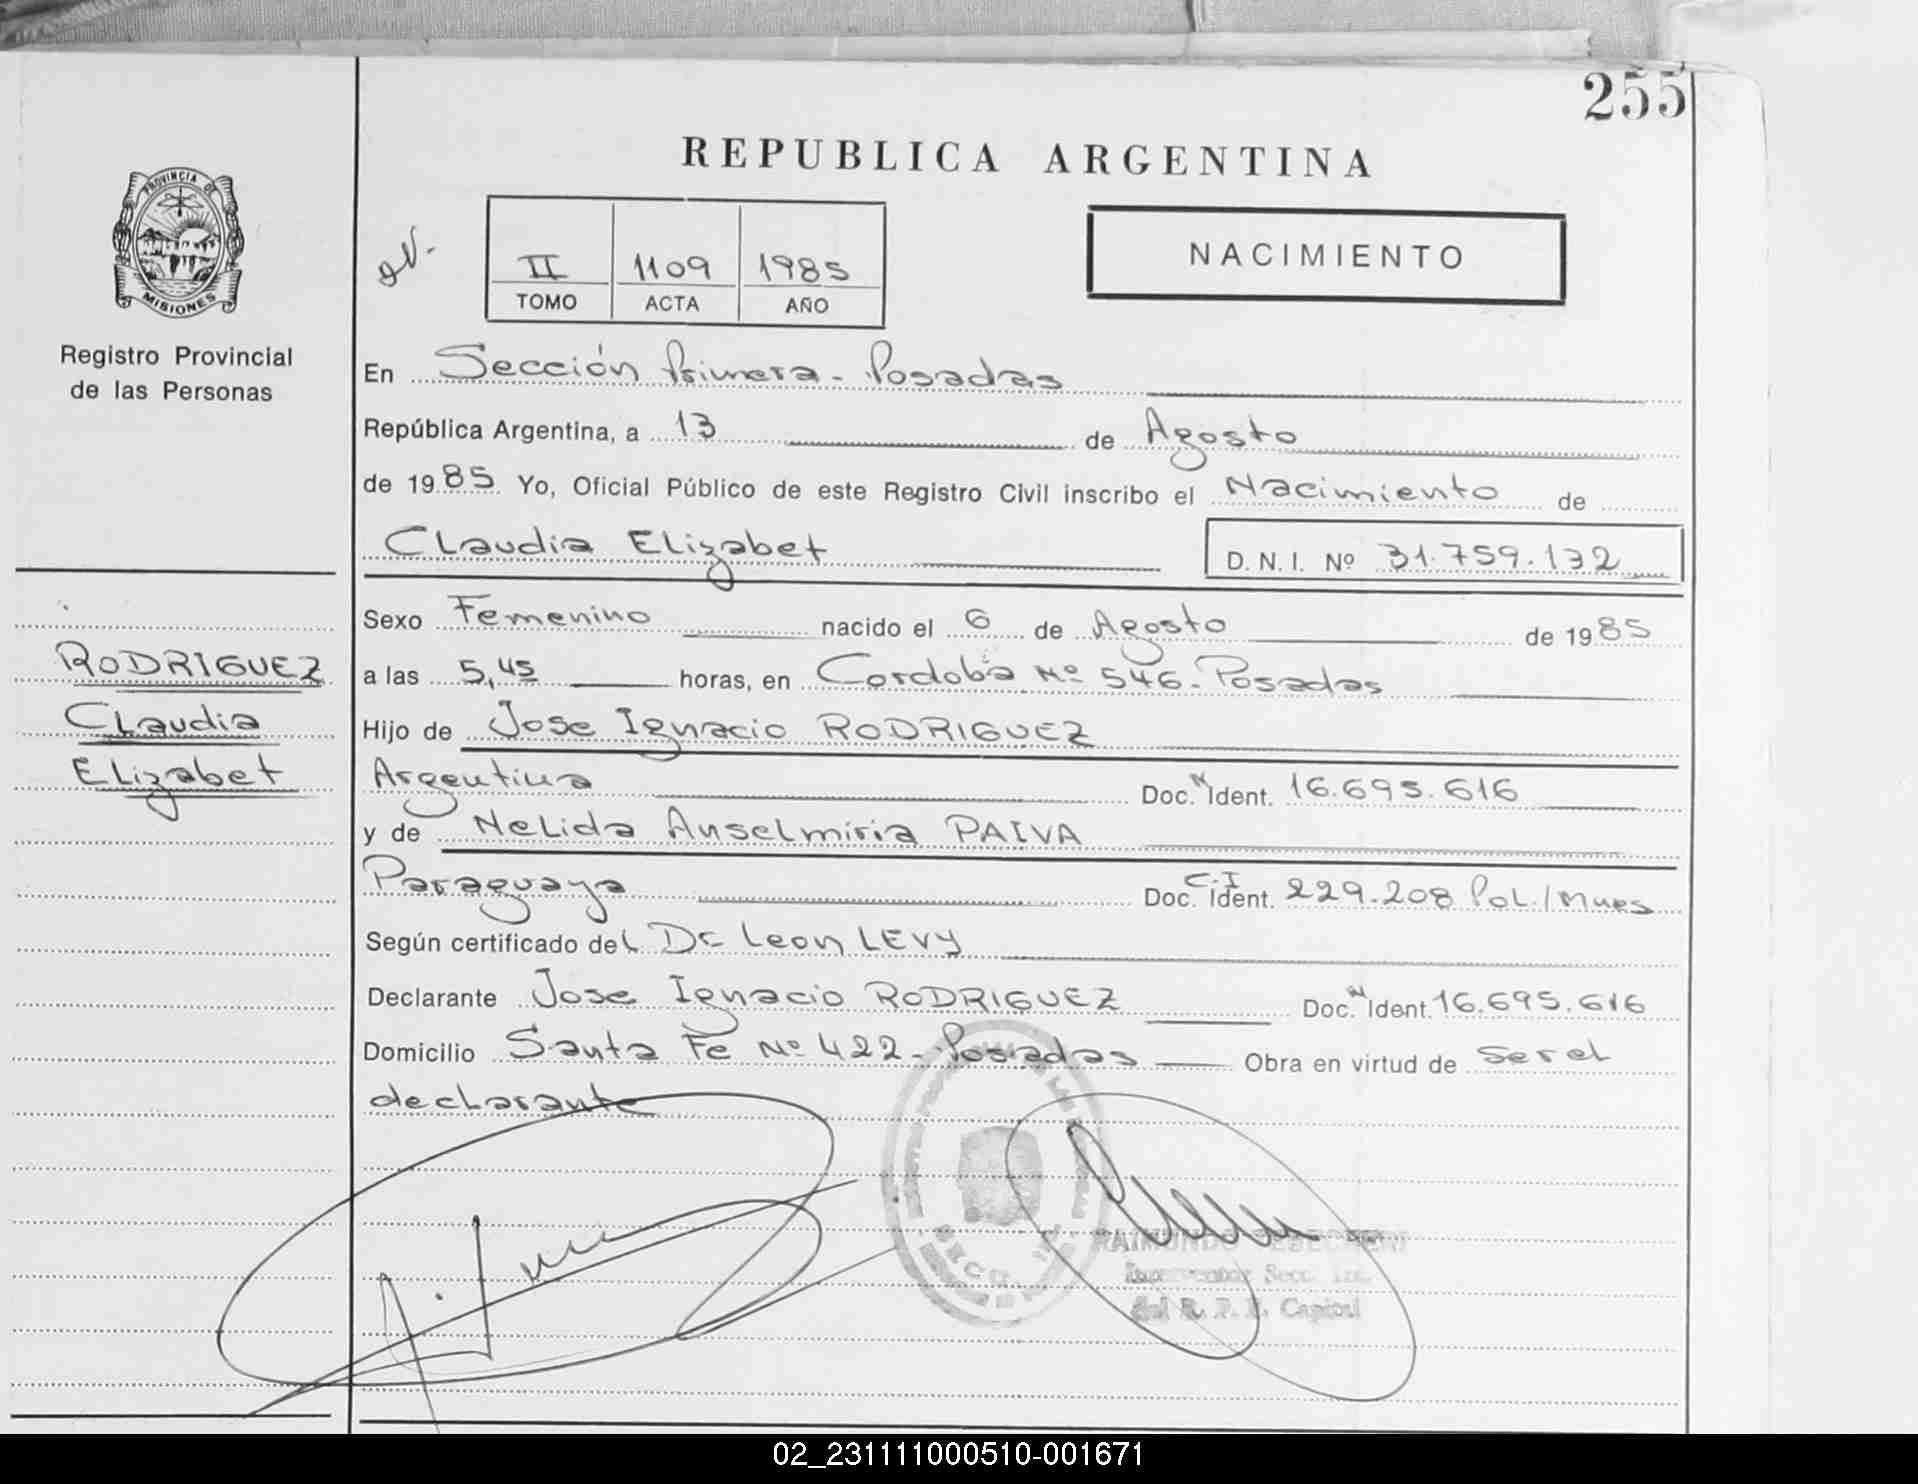 255
REPUBLICA ARGENTINA
PROVINCIA DE
MISIONES
Registro Provincial
de las Personas
II 1109 1985
TOMO ACTA AÑO
NACIMIENTO
En Sección Primera - Posadas
República Argentina, a 13 de Agosto
de 1985 Yo, Oficial Público de este Registro Civil inscribo el Nacimiento de
Claudia Elizabet D. N. I. Nº 31.759.132
Sexo Femenino nacido el 6 de Agosto de 1985
RODRIGUEZ
Claudia
Elizabet
a las 5,45 horas, en Cordoba Nº 546 - Posadas
Hijo de Jose Ignacio RODRIGUEZ
Argentina Doc. N Ident. 16.695.616
y de Nelida Anselmiria PAIVA
Paraguaya Doc. C.I Ident. 229.208 Pol./Mnes
Según certificado del Dr Leon LEVY
Declarante Jose Ignacio RODRIGUEZ Doc. N Ident. 16.695.616
Domicilio Santa Fe Nº 422 - Posadas Obra en virtud de ser el
declarante
RAIMUNDO
Secc. 1ra.
del R. P. P. Capital
02_231111000510-001671